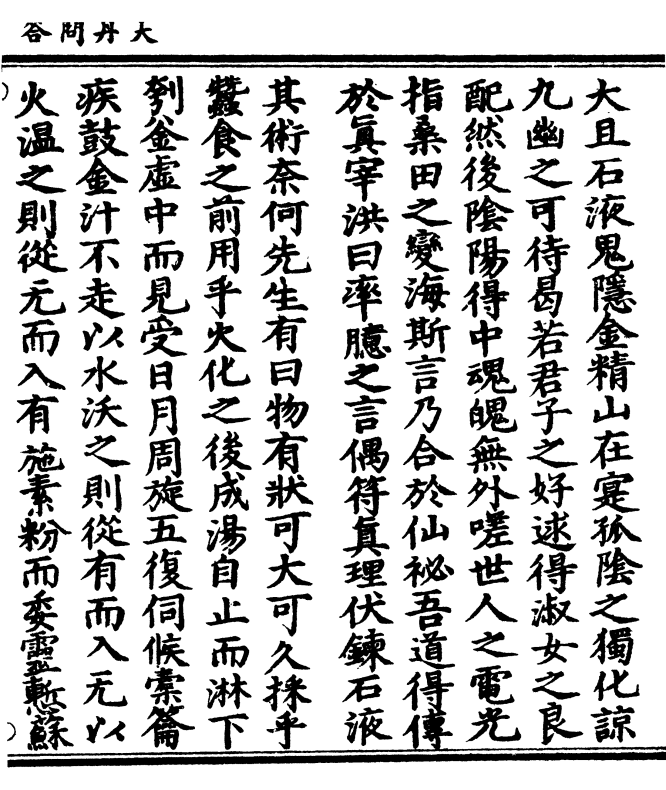 大丹問答
大且石液鬼隱金精山在寔孤陰之獨化諒
九幽之可待曷若君子之好逑得淑女之良
配然後陰陽得中魂魄無外嗟世人之電光
指桑田之變海斯言乃合於仙祕吾道得傳
於真宰洪曰率臆之言偶符真理伏鍊石液
其術奈何先生有曰物有狀可大可久採乎
蠶食之前用乎火化之後成湯自止而淋下
刳釡虛中而見受日月周旋五復伺候橐籥
疾鼓金汁不走以水沃之則從有而入无以
火温之則從无而入有施素粉而委靈慙蘇